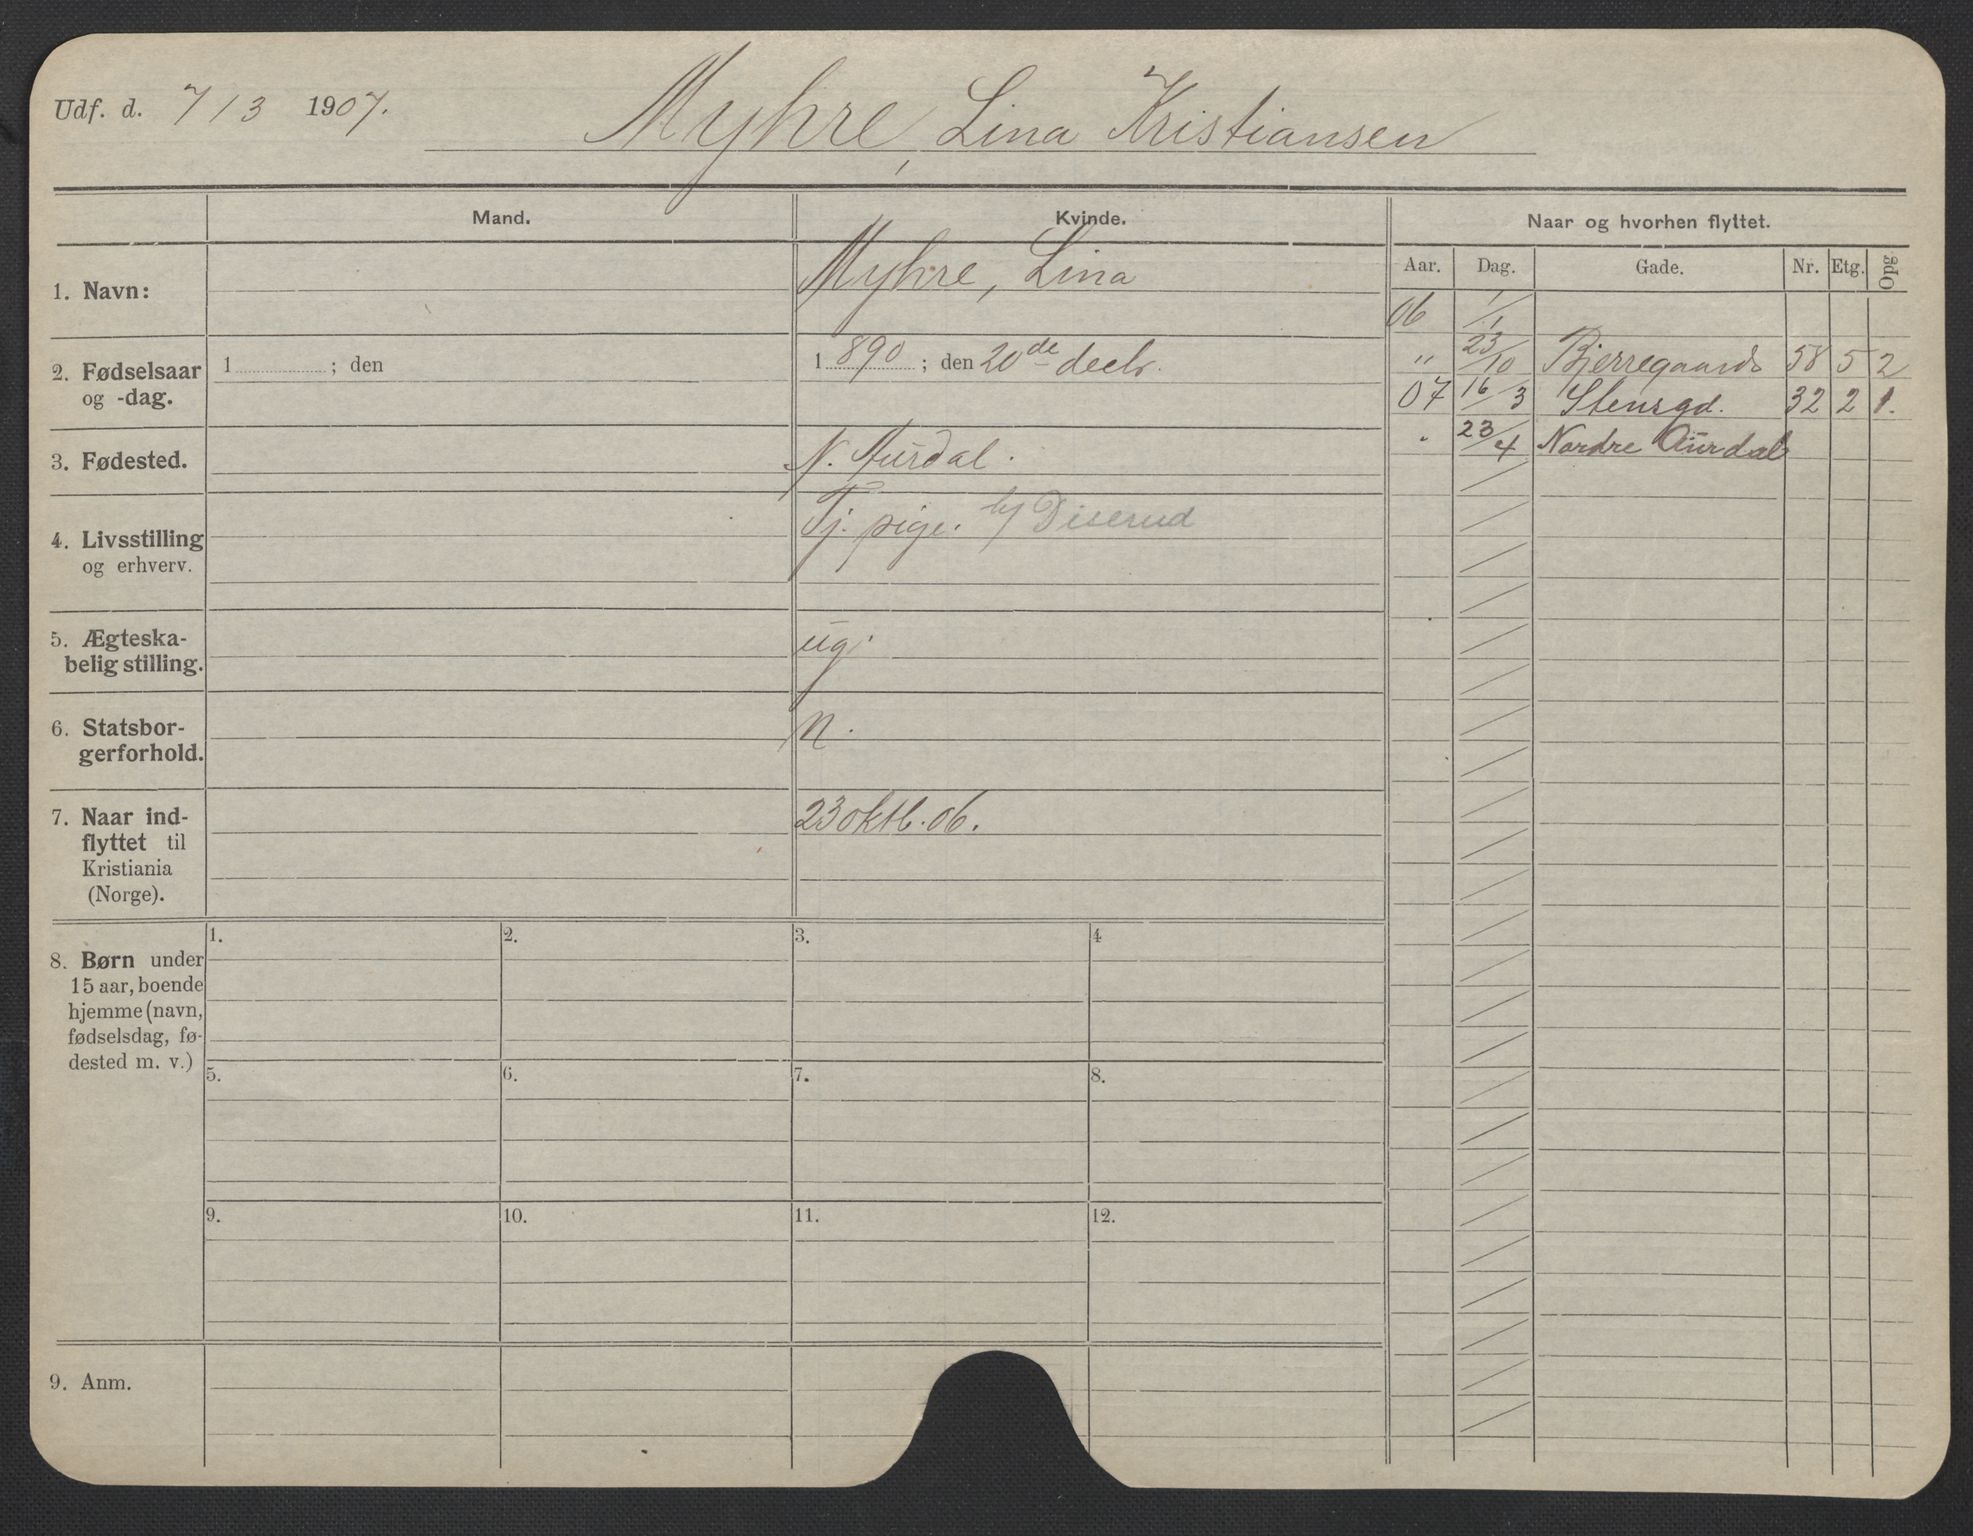 Udf. d. 7/3 1907. Myhre, Lina Kristiansen
Mand. Kvinde. Naar og hvorhen flyttet.
Aar. Dag. Gade. Nr. Etg. Opg
1. Navn: Myhre, Lina
06 1/1
2. Fødselsaar og -dag. 1 ; den 1 890 ; den 20de decbr.
" 23/10 Bjerregaards 58 5 2
07 16/3 Stensgd. 32 2 1.
" 23/4 Nordre Aurdal
3. Fødested. N. Aurdal.
4. Livsstilling
og erhverv.
Tj. pige. Diserud
5. Ægteska-
belig stilling.
ug.
6. Statsbor-
gerforhold.
n.
7. Naar ind-
flyttet til
Kristiania
(Norge).
23 oktb. 06.
8. Børn under
15 aar, boende
hjemme (navn,
fødselsdag, fø-
dested m. v.)
1. 2. 3. 4
5. 6. 7. 8.
9. 10. 11. 12.
9. Anm.